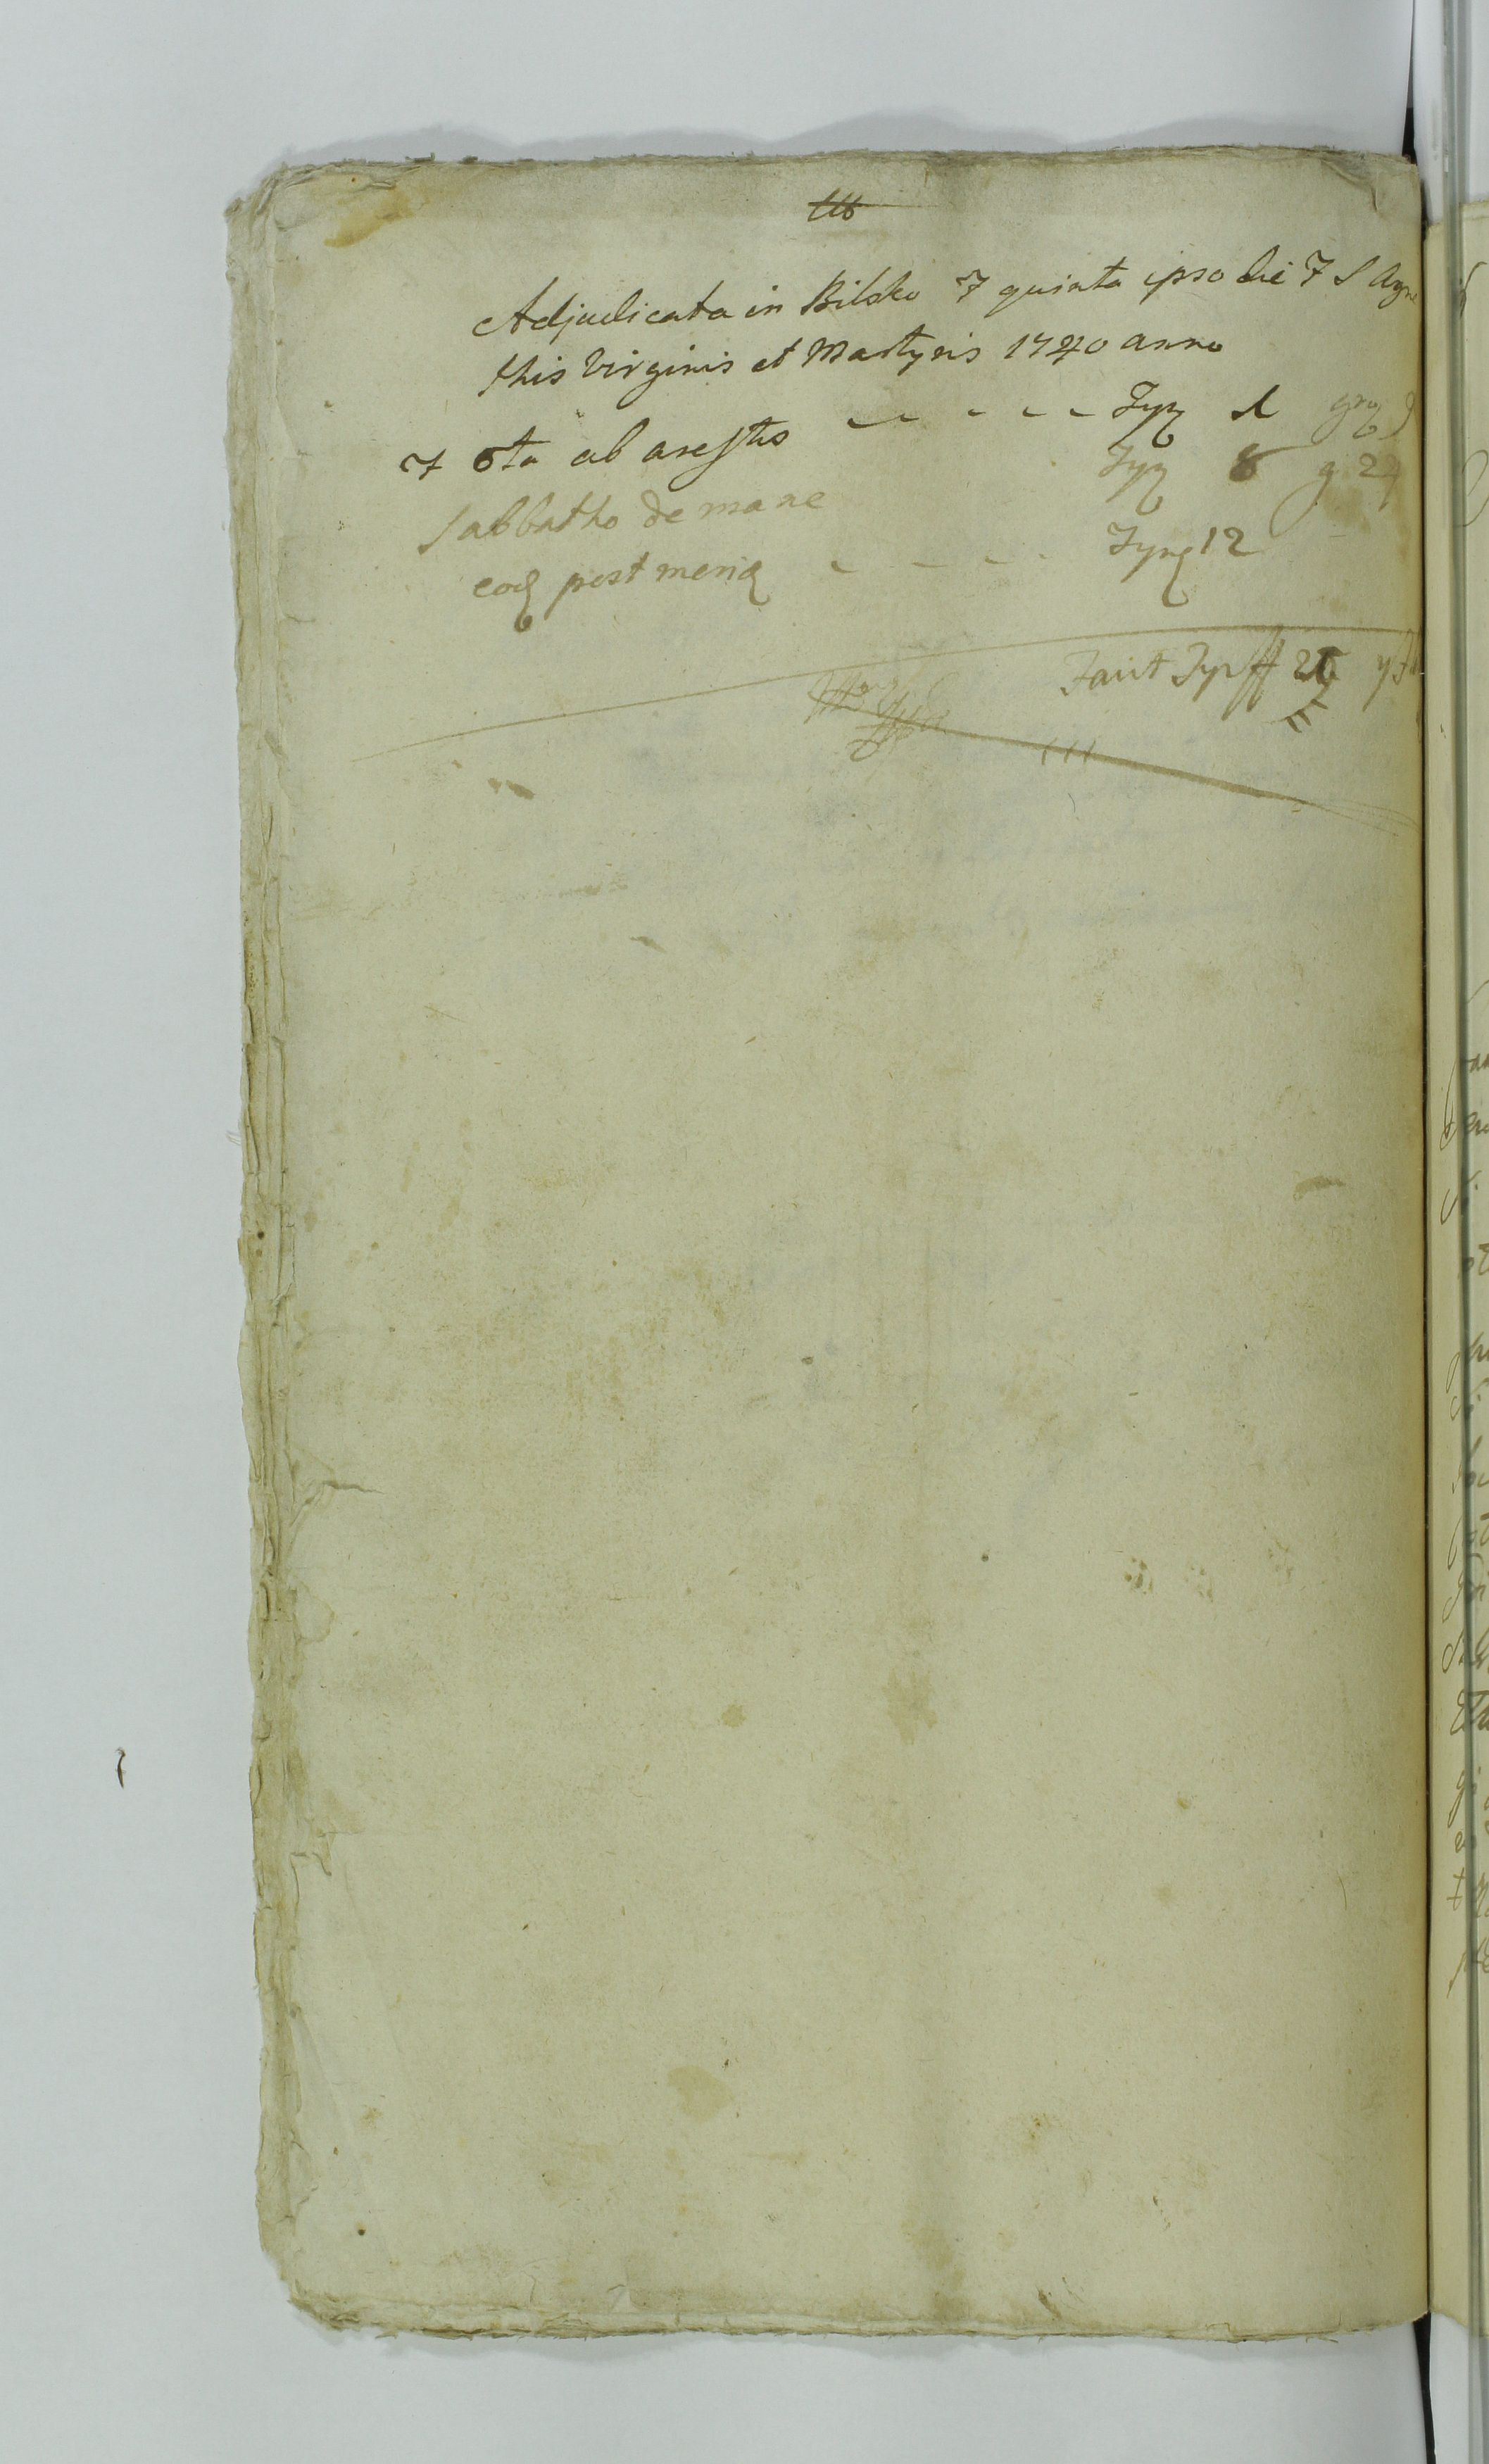 Adjudicata in Bilsko F quinta ipso die F S Agne
this Virginis et Martyris 1740 anno
F 6ta ab arestis - - - - - Tyz 1 grz
Sabbatho de mane Tyz 8 g 27
eod post merid - - - - Tyz 12
Facit Tyff